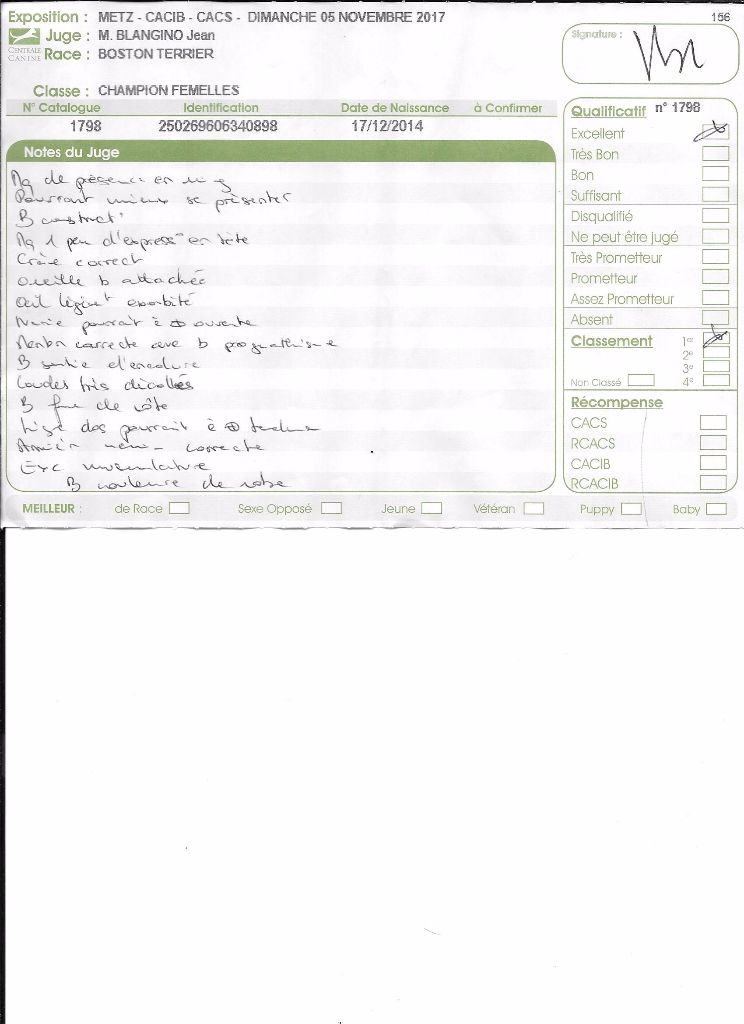 Exposition : METZ - CACIB - CACS - DIMANCHE 05 NOVEMBRE 2017
156
CENTRALE CANINE
Juge : M. BLANGINO Jean
Race : BOSTON TERRIER
Signature :
Classe : CHAMPION FEMELLES
N° Catalogue Identification Date de Naissance à Confirmer
1798 250269606340898 17/12/2014
Notes du Juge
Mq de présence en ring
Pourrait mieux se présenter
B construct°
Mq 1 peu d'express° en tête
Crâne correct
Oreille b attachée
Œil légèrt exorbité
Narine pourrait ê ⊕ ouverte
Menton correcte avec b prognathisme
B sortie d'encolure
Coudes très décollés
B de côte
Ligne dos pourrait ê ⊕ tendue
correcte
Exc musculature
B couleur de robe
Qualificatif n° 1798
Excellent
Très Bon
Bon
Suffisant
Disqualifié
Ne peut être jugé
Très Prometteur
Prometteur
Assez Prometteur
Absent
Classement 1er
2e
3e
Non Classé 4e
Récompense
CACS
RCACS
CACIB
RCACIB
MEILLEUR : de Race Sexe Opposé Jeune Vétéran Puppy Baby